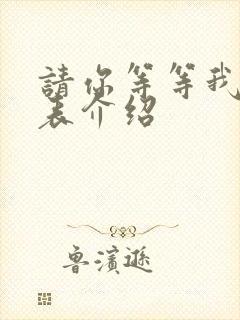 請你等等我
表介绍
鲁濱遜